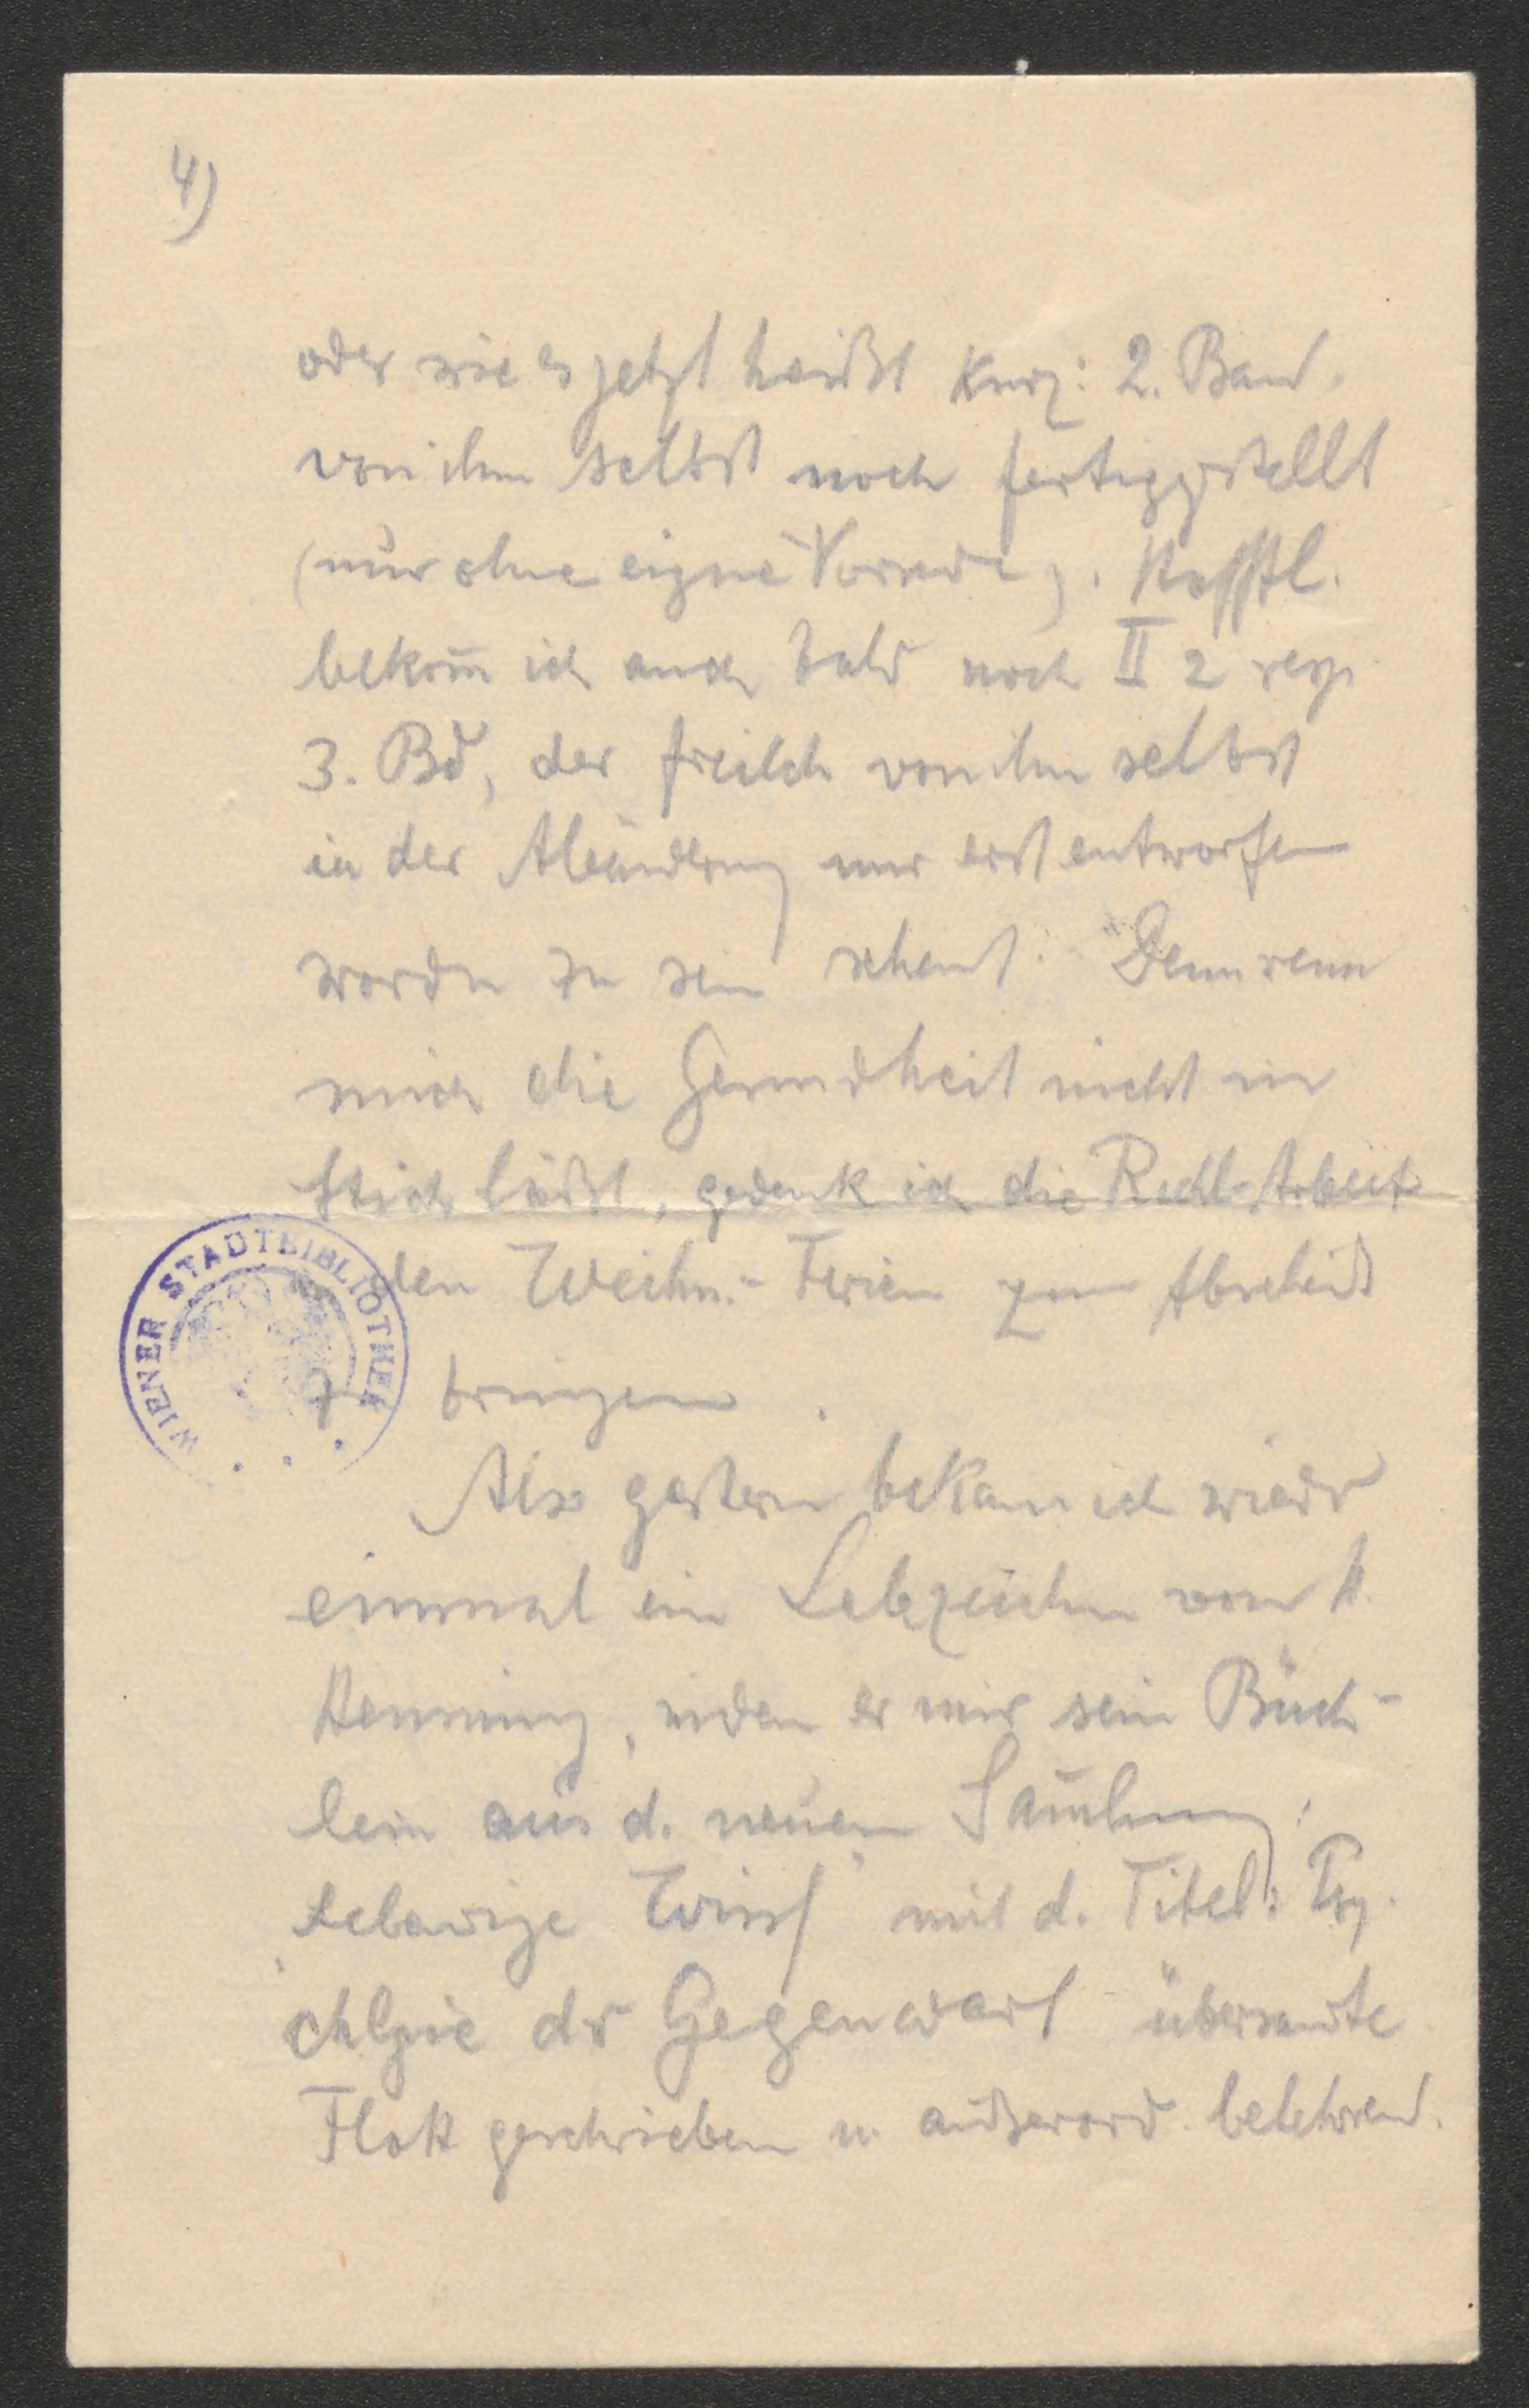 4)
oder wie es jetzt heißt kurz: 2. Band.
von ihm selbst noch fertiggestellt
(nur ohne eigne Vorrede). Hfftl.
bekom̄ ich auch bald noch II 2 resp.
3. Bd, der freilich von ihm selbst
in der Abänderung nur erst entworfen
worden zu sein scheint. Denn wenn
mich die Gesundheit nicht im
Stich läßt, gedenk ich die Arbeit
den Weihn.-Ferien zum Abschluß
zu bringen.
Also gestern bekam ich wieder
einmal ein Lebzeichen von H.
Henning, indem er mir sein Büch-
lein aus d. neuen Sam̄lung:
„Lebendige Wiss“ mit d. Titel: Psy-
chlgie der Gegenwart übersandte.
Flott geschrieben u. außerord. belehrend.
WIENER STADTBIBLIOTHEK